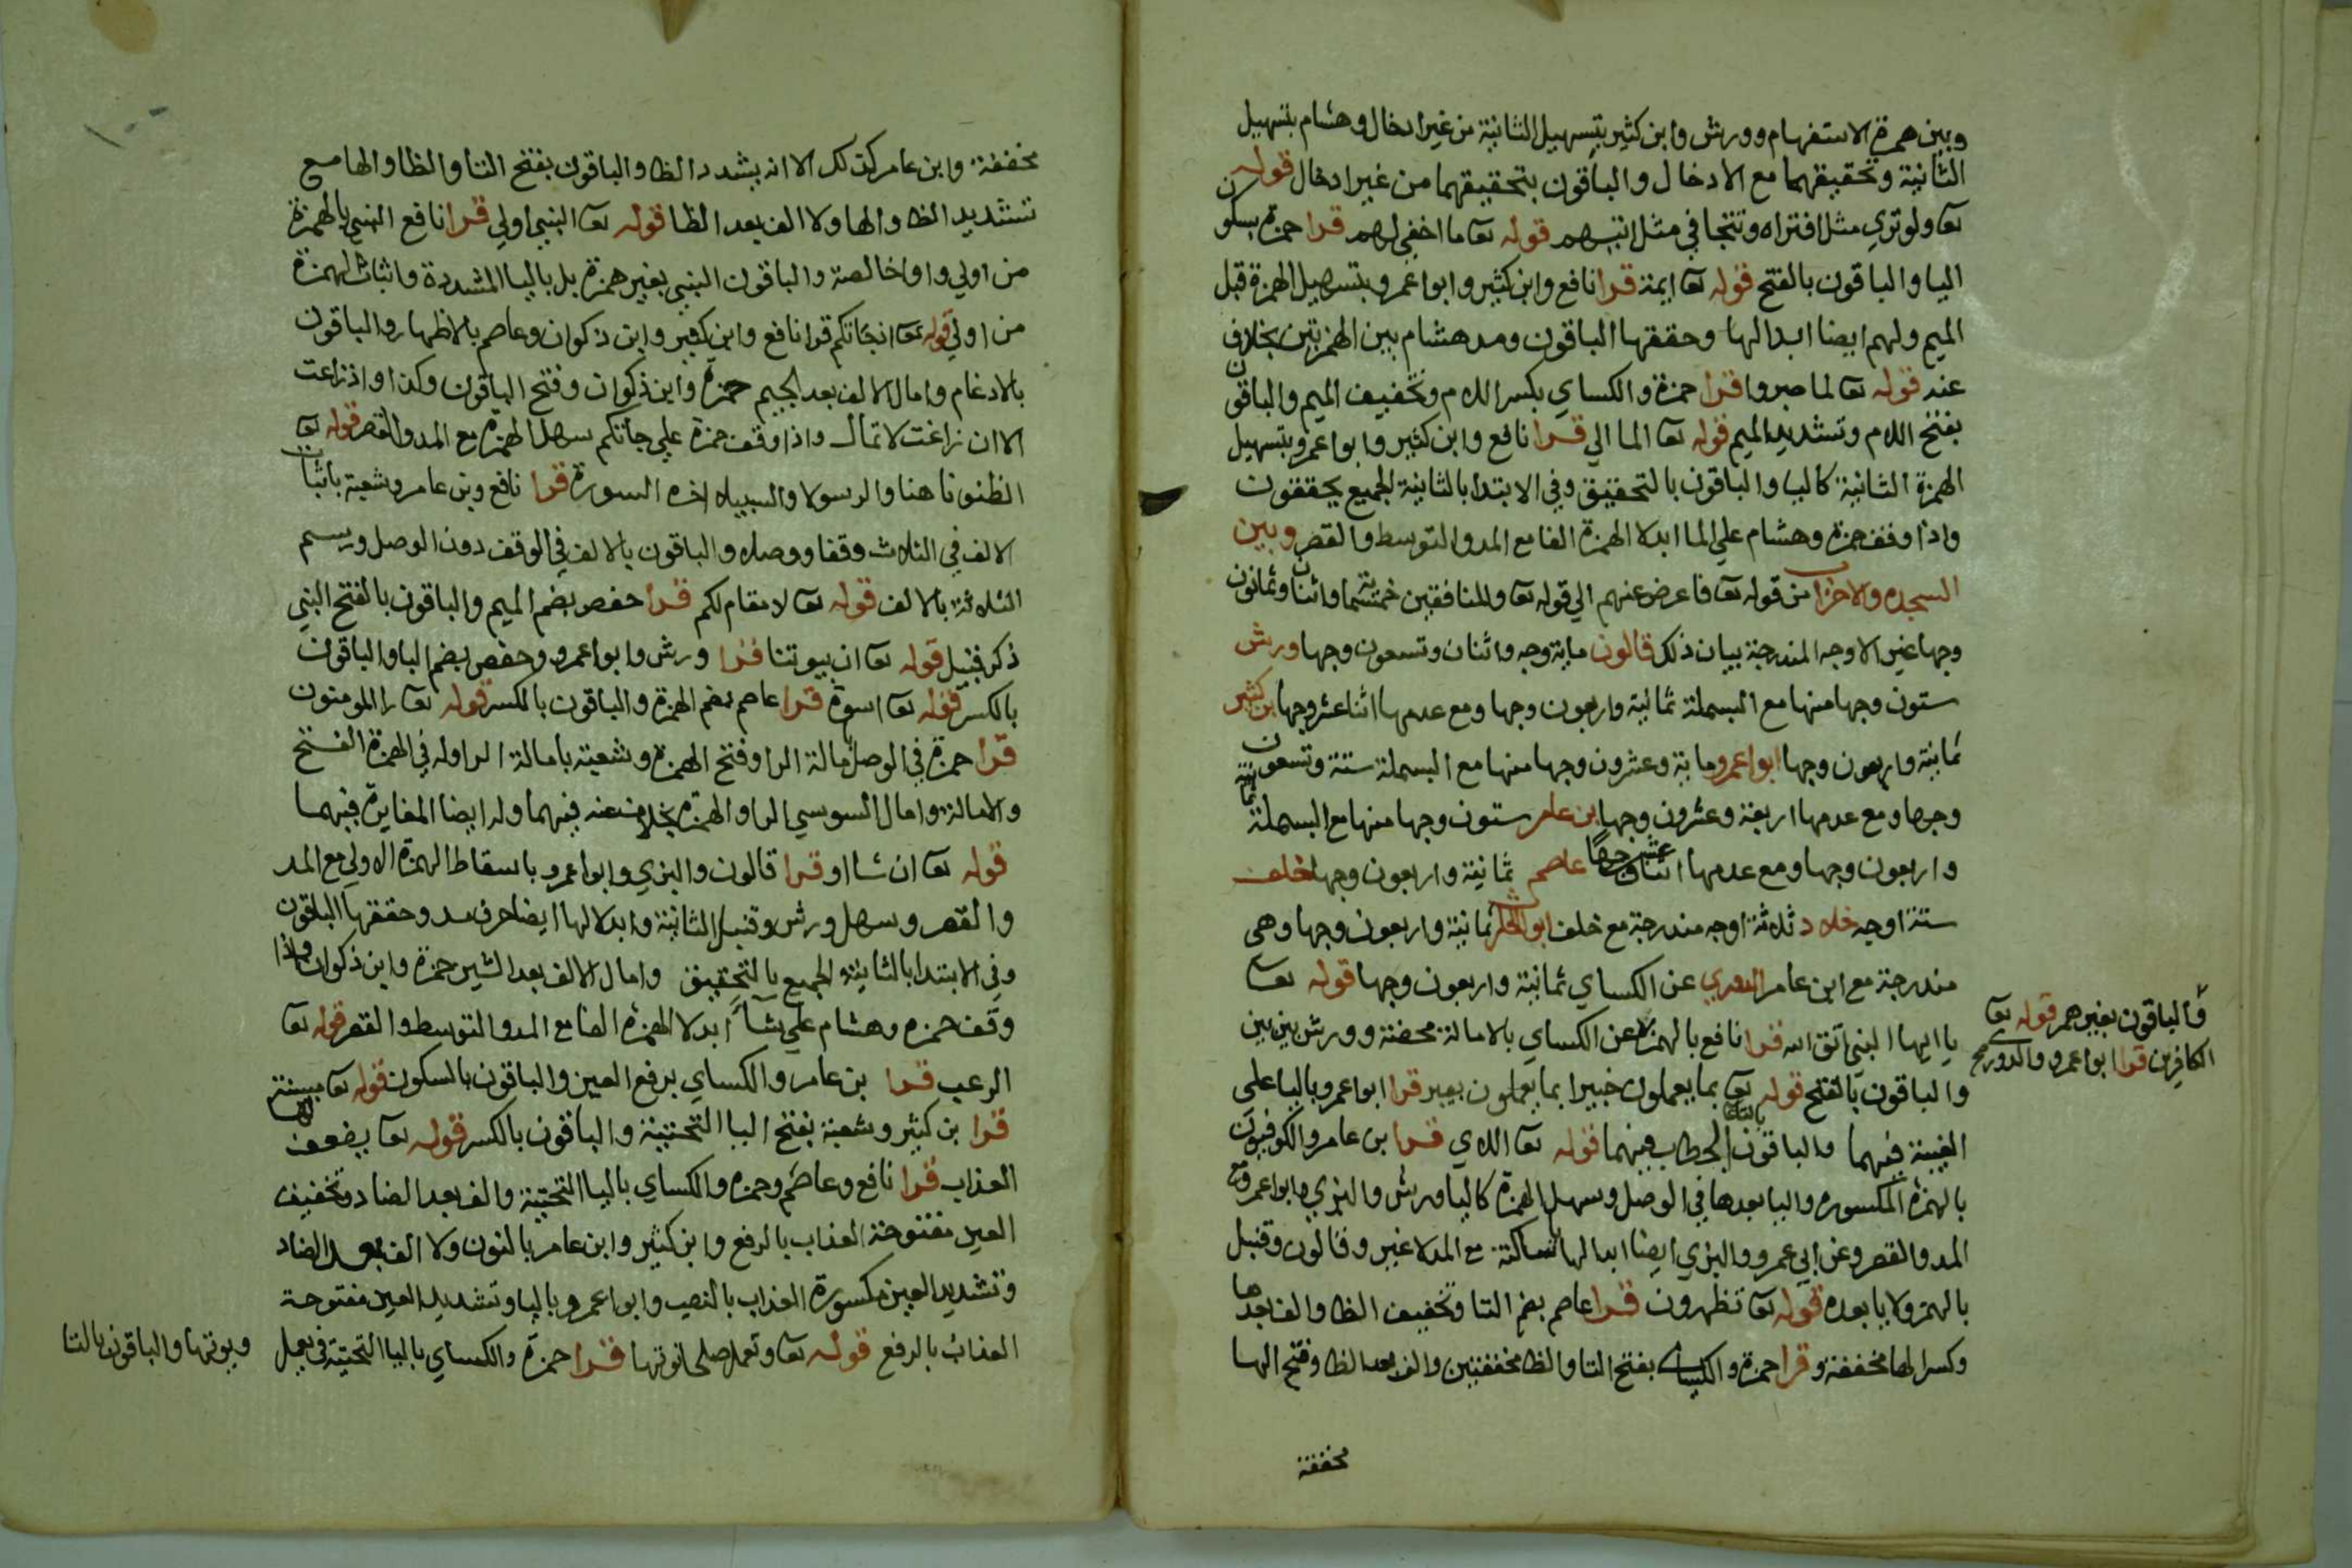 وبين همزة الاستفهام وورش وابن كثير بتسهيل الثانية من غير ادخال وهشام بتسهيل
الثانية وتحقيقهما مع الادخال والباقون بتحقيقهما من غير ادخال قوله
تعا ولو تري مثل افتراه وتتجافي مثل اتيهم قوله تعا ما اخفي لهم قرا حمزة بسكون
اليا والباقون بالفتح قوله تعا ايمة قرا نافع وابن كثير وابو اعمرو بتسهيل الهمزة قبل
الميم ولهم ايضا ابدالها وحققها الباقون ومد هشام بين الهمزتين بخلاف
عنه قوله تعا لما صبروا قرا حمزة والكساي بكسر اللام وتخفيف الميم والباقون
بفتح اللام وتشديد الميم قوله تعا الما الي قرا نافع وابن كثير وابو اعمرو بتسهيل
الهمزة الثانية كاليا والباقون بالتحقيق وفي الابتدا بالثانية الجميع يحققون
واذا وقف حمزة وهشام علي الما ابدلا الهمزة الفا مع المد والتوسط والقصر وبين
السجده والاحزاب من قوله تعا فاعرض عنهم الي قوله تعا والمنافقين خمسماية واثنان وثمانون
وجها غير الاوجه المندرجة بيان ذلك قالون ماية وجه واثنان وتسعون وجها ورش
ستون وجها منها مع البسملة ثمانية واربعون وجها ومع عدمها اثنا عشر وجها ابن كثير
ثمانية واربعون وجها ابو اعمرو ماية وعشرون وجها منها مع البسملة ستة وتسعون
وجها ومع عدمها اربعة وعشرون وجها ابن عامر ستون وجها منها مع البسملة ثمانية
واربعون وجها ومع عدمها اثنا عشر وجها عاصم ثمانية واربعون وجها خلف
ستة اوجه خلاد ثلاثة اوجه مندرجة مع خلف ابو الحارث ثمانية واربعون وجها وهي
مندرجة مع ابن عامر الدوري عن الكساي ثمانية واربعون وجها قوله تعا
يا ايها النبي اتق الله قرا نافع بالهمزة عن الكساي بالامالة محضة وورش بين بين
والباقون بغير همز قوله تعا
الكافرين قرا ابو اعمرو والدوري
والباقون بالفتح قوله تعا بما يعملون خبيرا بما يعملون بصير قرا ابو اعمرو باليا علي
الغيبة فيهما والباقون بالتا الخطاب فيهما قوله تعا اللاي قرا بن عامر والكوفيون
بالهمزة المكسورة واليا بعدها في الوصل وسهل الهمزة كاليا ورش والبزي وابو اعمرو مع
المد والقصر وعن ابي عمرو والبزي ايضا ابدالها ساكنة مع المد لا غير وقالون وقنبل
بالهمز ولا يا بعده قوله تعا تظهرون قرا عاصم بضم التا وتخفيف الظا والف بعدها
وكسر الها مخففة وقرا حمزة والكساي بفتح التا والظا مخففتين والف بعد الظا وفتح الها
مخففة
مخففة وابن عامر كذلك الا انه يشدد الظا والباقون بفتح التا والظا والها مع
تشديد الظا والها ولا الف بعد الظا قوله تعا النبي اولي قرا نافع النبي بالهمزة
من اولي واوا خالصة والباقون النبي بغير همزة بل باليا المشددة واثبات الهمزة
من اولي قوله تعا اذ جاتكم قرا نافع وابن كثير وابن ذكوان وعاصم بالاظهار والباقون
بالادغام وامال الالف بعد الجيم حمزة وابن ذكوان وفتح الباقون وكذا واذ زاغت
الا ان زاغت لا تمال واذا وقف حمزة علي جاتكم سهل الهمزة مع المد والقصر قوله تعا
الظنونا هنا والرسولا والسبيلا اخر السورة قرا نافع وبن عامر وشعبة باثبات
الالف في الثلاث وقفا ووصلا والباقون بالالف في الوقف دون الوصل ورسم
الثلاثة بالالف قوله تعا لا مقام لكم قرا حفص بضم الميم والباقون بالفتح النبي
ذكر قبيل قوله تعا ان بيوتنا قرا ورش وابو اعمرو وحفص بضم البا والباقون
بالكسر قوله تعا اسوة قرا عاصم بضم الهمزة والباقون بالكسر قوله تعا را المومنون
قرا حمزة في الوصل بامالة الرا وفتح الهمزة وشعبة بامالة الرا وله في الهمزة الفتح
والامالة وامال السوسي الرا والهمزة بخلاف عنه فيهما وله ايضا المغايرة فيهما
قوله تعا ان شا او قرا قالون والبزي وابو اعمرو باسقاط الهمزة الاولي مع المد
والقصر وسهل ورش وقنبل الثانية وابدلالها ايضا حرف مد وحققها الباقون
وفي الابتدا بالثانية الجميع بالتحقيق وامال الالف بعد الشين حمزة وابن ذكوان واذا
وقف حمزه وهشام علي شآء ابدلا الهمزة الفا مع المد والتوسط والقصر قوله تعا
الرعب قرا بن عامر والكساي برفع العين والباقون بالسكون قوله تعا مبينة
قرا بن كثير وشعبة بفتح اليا التحتية والباقون بالكسر قوله تعا يضعف لها
العذاب قرا نافع وعاصم وحمزه والكساي باليا التحتية والف بعد الضاد وتخفيف
العين مفتوحة العذاب بالرفع وابن كثير وابن عامر بالنون ولا الف بعد الضاد
وتشديد العين مكسورة العذاب بالنصب وابو اعمرو باليا وتشديد العين مفتوحة
العذاب بالرفع قوله تعا وتعمل صلحا نوتها قرا حمزة والكساي باليا التحتية في يعمل ويوتها والباقون بالتا